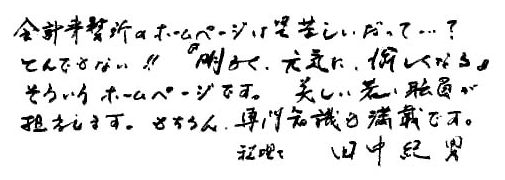 会計事務所のホームページは堅苦しいだって…？
とんでもない!!『明るく、元気に、愉しくなる』
そういうホームページです。美しい若い職員が
担当します。もちろん、専門知識も満載です。
税理士 田中紀男